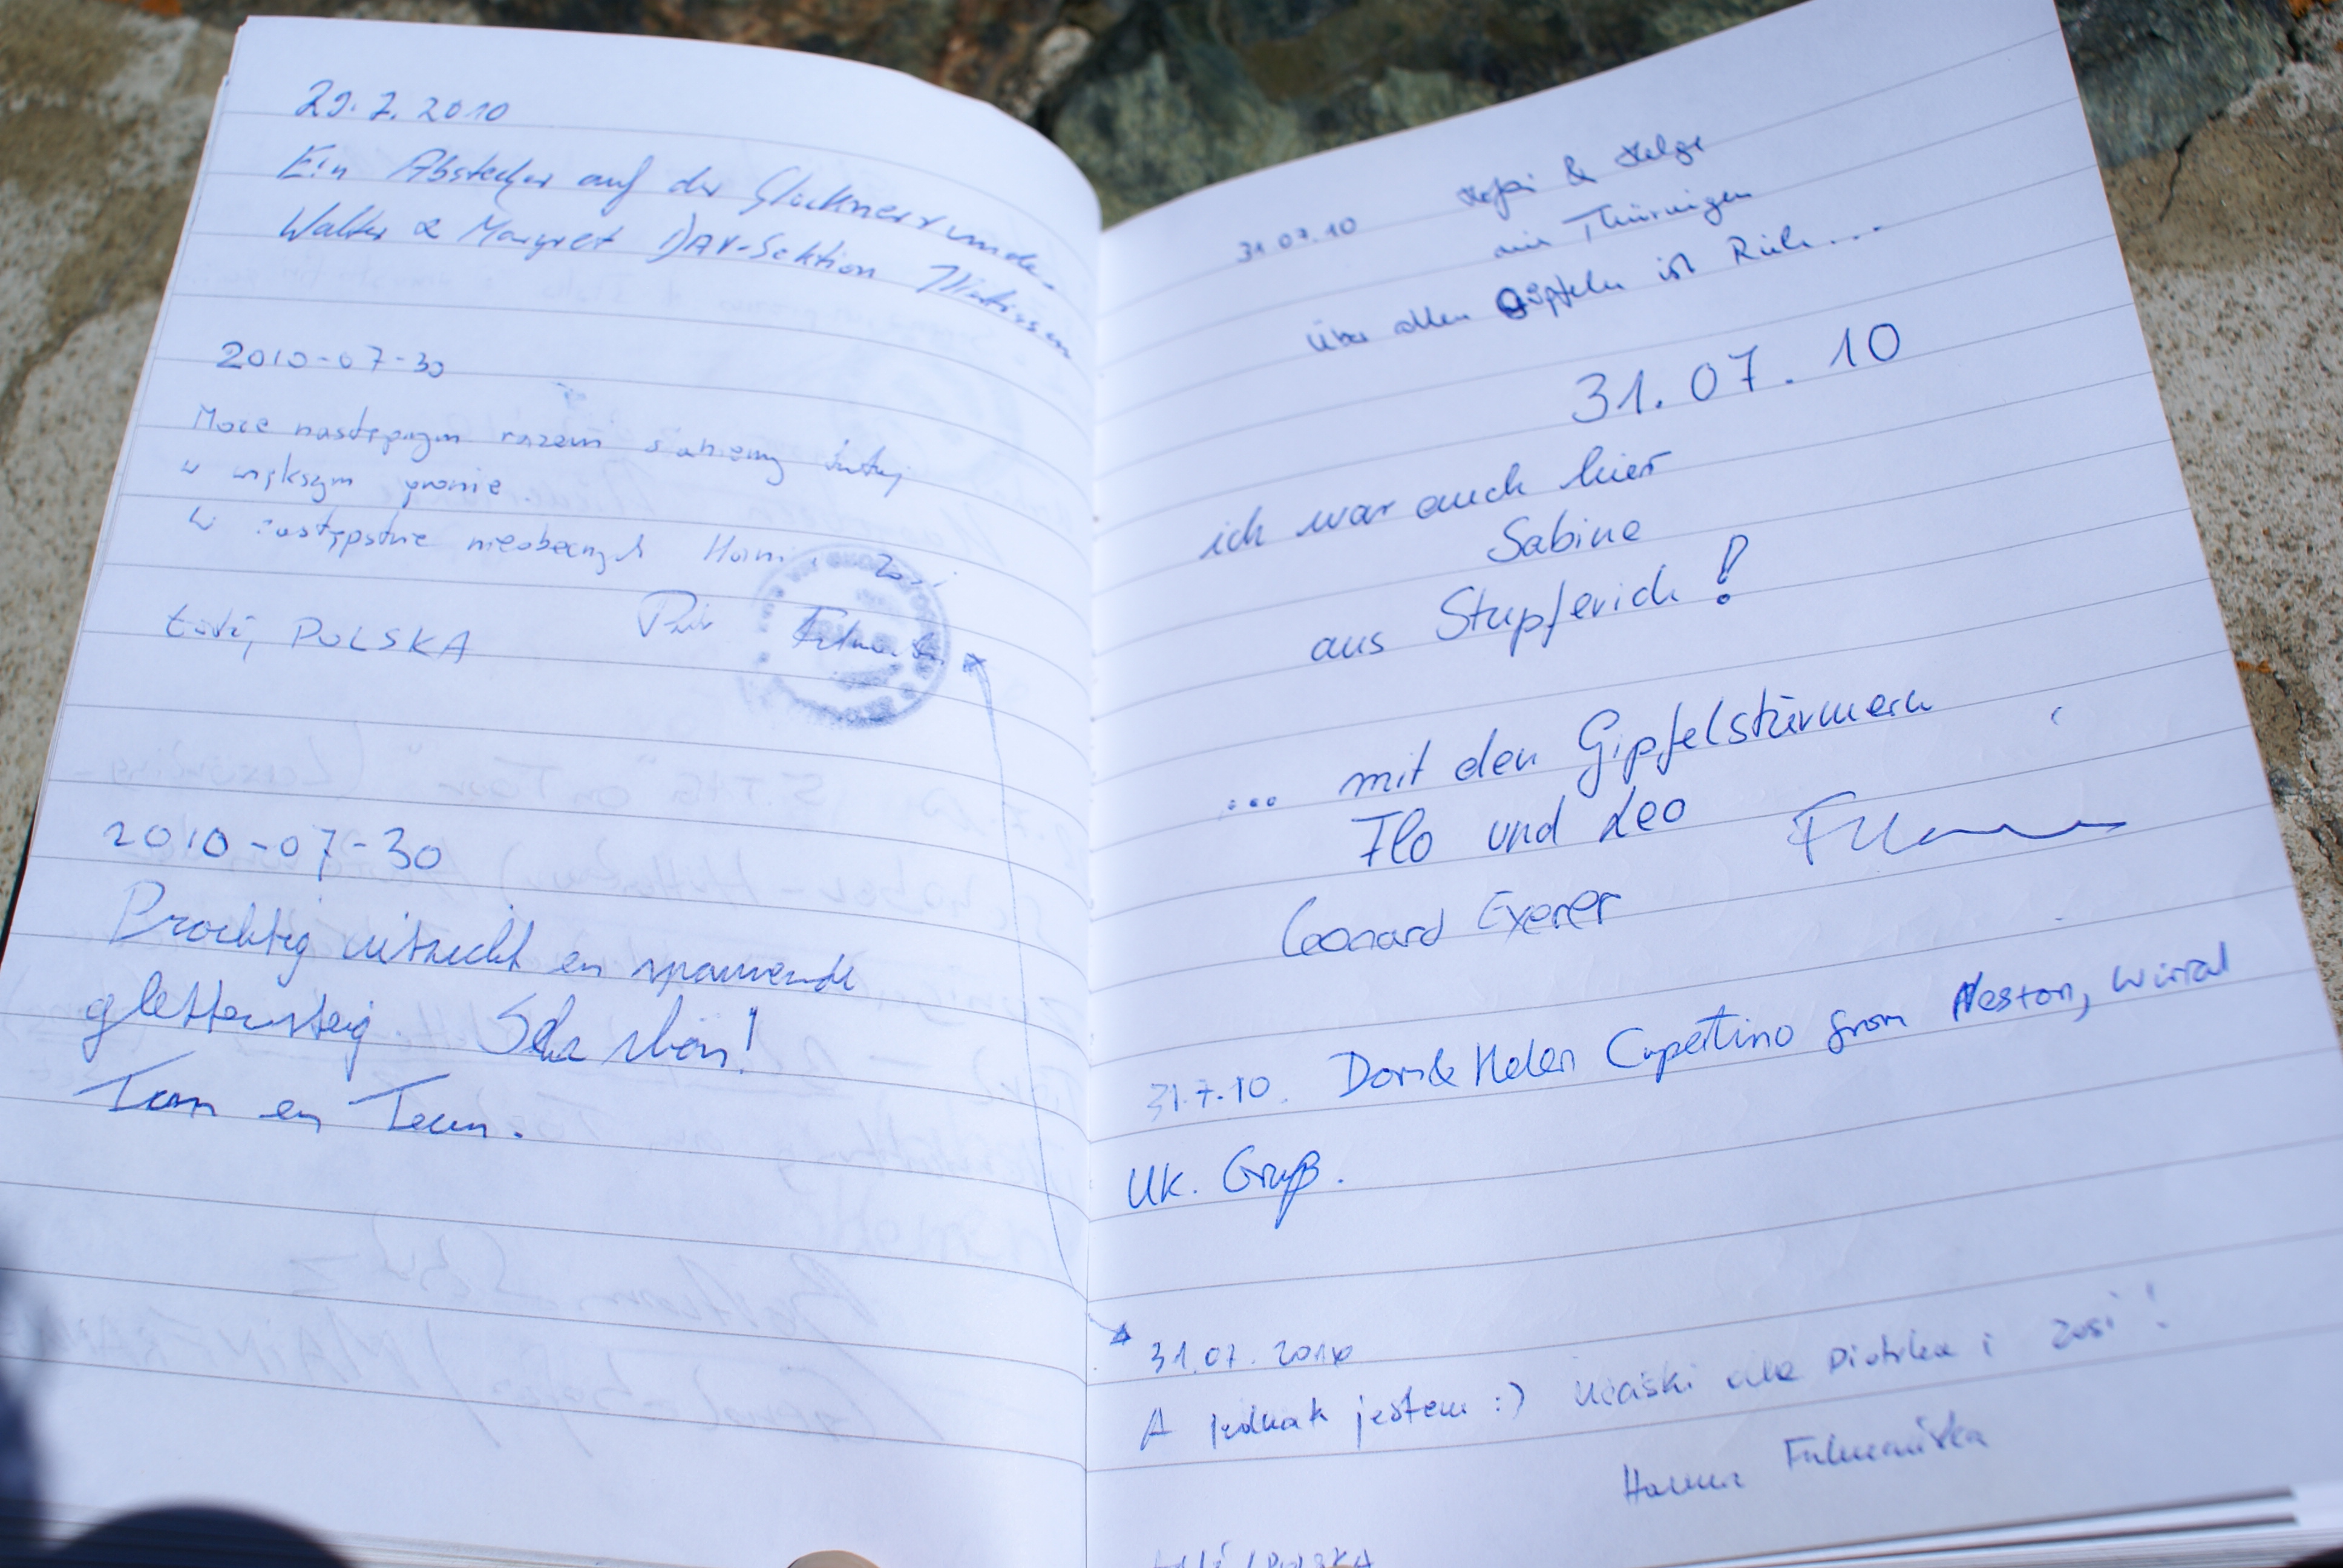 29.7.2010
Ein Abstecher auf der Glocknerrunde
Walter & Margret DAV-Sektion
2010-07-30
Może następnym razem staniemy tutaj
w większym gronie.
W zastępstwie nieobecnych Hani i Zosi
Łódź, POLSKA
2010-07-30
Prachtig uitzicht en spannende
glettersteig. Sehr schön!
Tom en Teun.
31.07.10 & Helge
aus Thüringen
über allen Gipfeln ist Ruh...
31.07.10
ich war auch hier
Sabine
aus Stupferich!
... mit den Gipfelstürmern
Flo und Leo
Leonard Exener
31.7.10. Dom & Helen Cupertino from Neston, Wirral
UK. Gruß.
31.07.2010
A jednak jestem :) Uściski dla Piotrka i Zosi!
Hanna
POLSKA